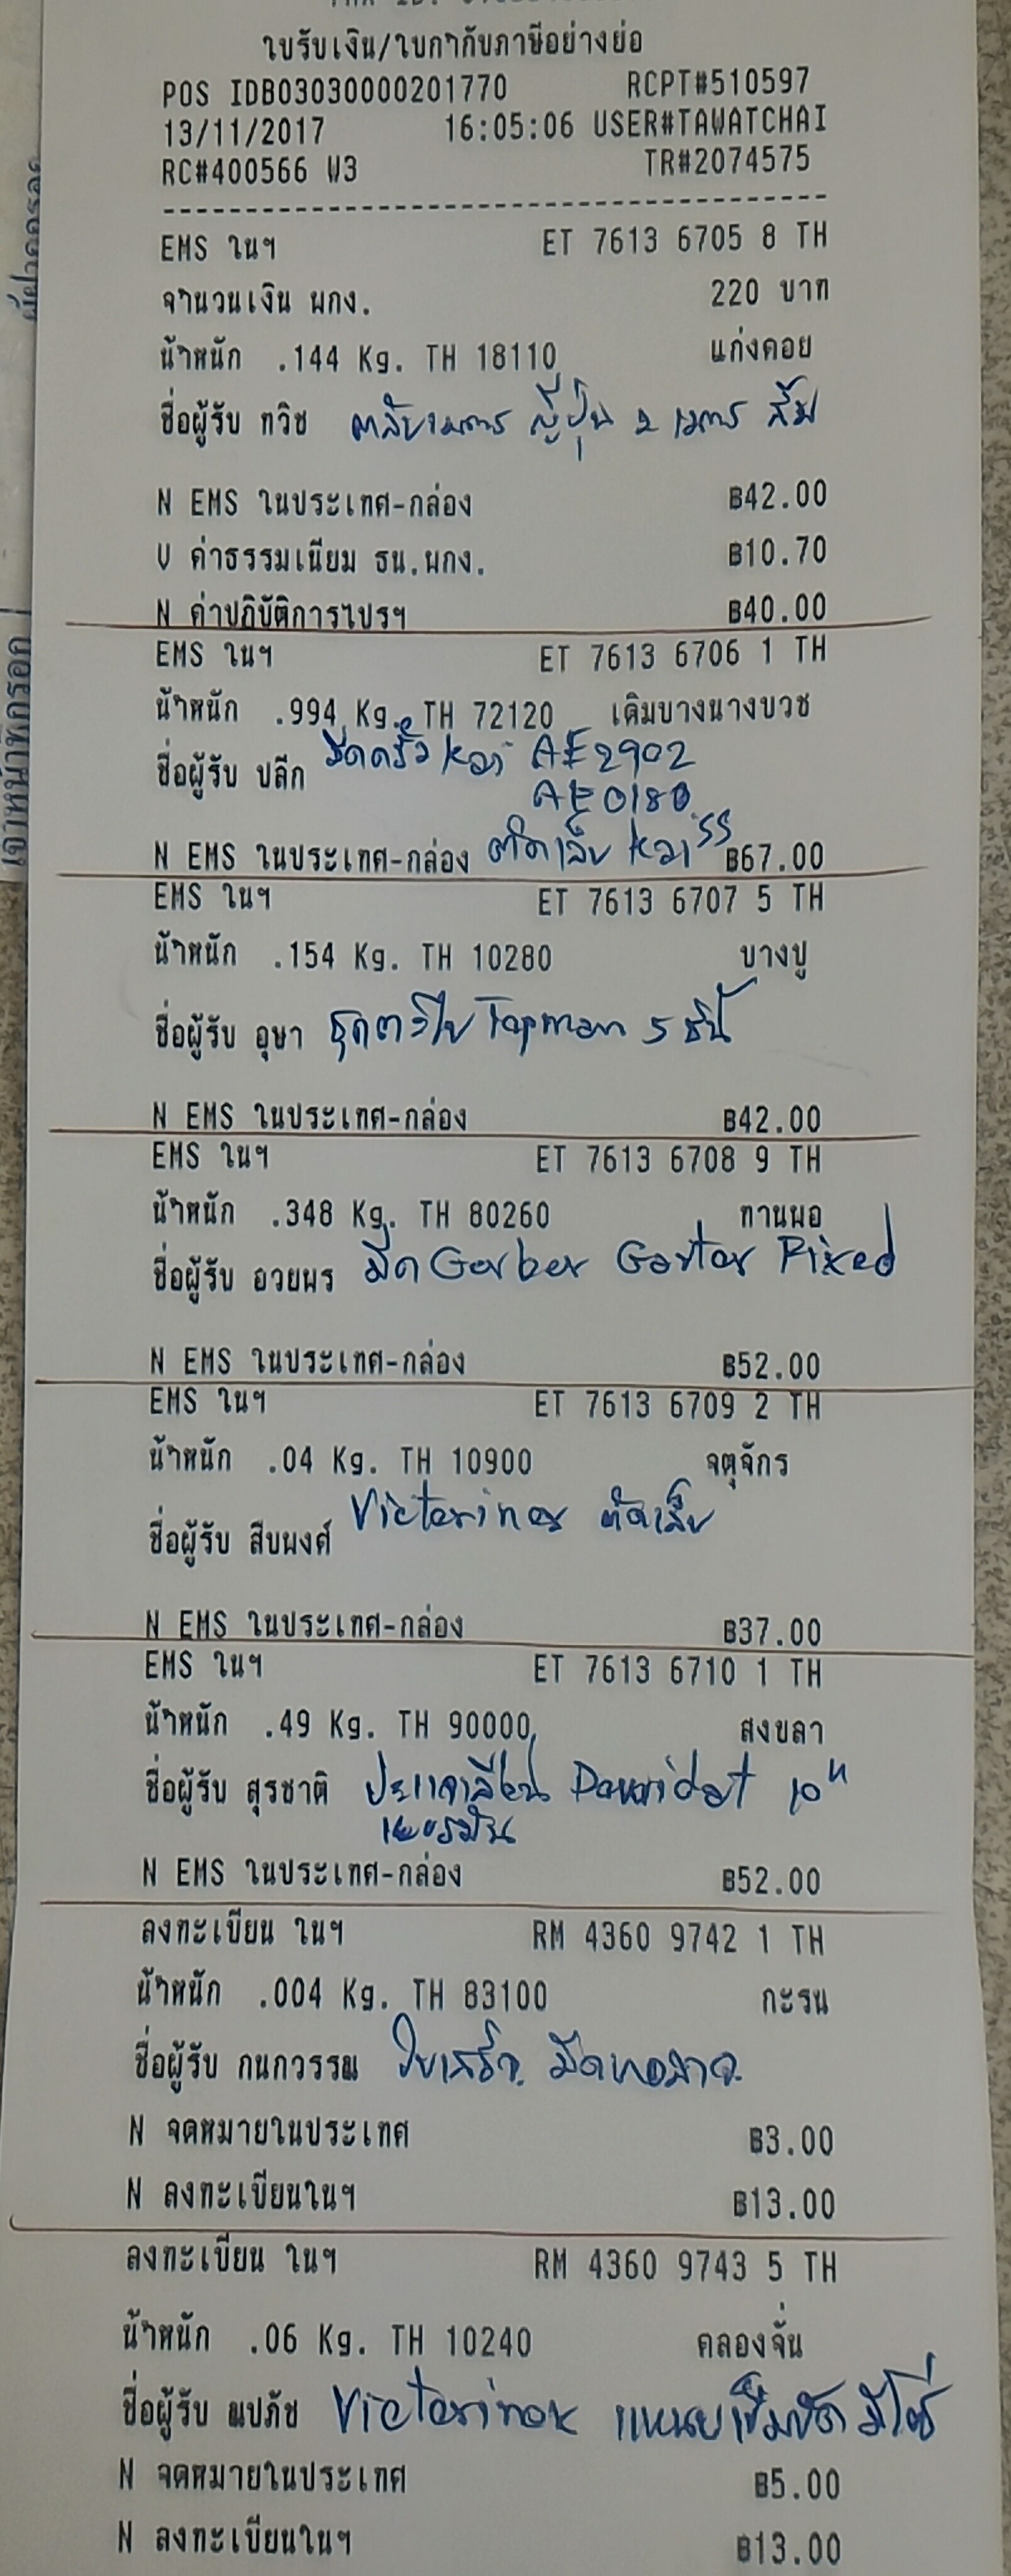 ใบรับเงิน/ใบกำกับภาษีอย่างย่อ
POS IDB03030000201770 RCPT#510597
13/11/2017 16:05:06 USER#TAWATCHAI
RC#400566 W3 TR#2074575
EMS ในฯ ET 7613 6705 8 TH
จำนวนเงิน ผกง. 220 บาท
น้ำหนัก .144 Kg. TH 18110 แก่งคอย
ชื่อผู้รับ ทวิช ตลับเมตร ญี่ปุ่น 2 เมตร ส้ม
N EMS ในประเทศ-กล่อง ฿42.00
V ค่าธรรมเนียม ธน.ผกง. ฿10.70
N ค่าปฏิบัติการไปรฯ ฿40.00
EMS ในฯ ET 7613 6706 1 TH
น้ำหนัก .994 Kg. TH 72120 เดิมบางนางบวช
ชื่อผู้รับ ปลีก มีดครัว Kai AE2902
AE0180
N EMS ในประเทศ-กล่อง ตัดเล็บ Kai SS ฿67.00
EMS ในฯ ET 7613 6707 5 TH
น้ำหนัก .154 Kg. TH 10280 บางปู
ชื่อผู้รับ อุษา ชุดตะไบ Topman 5 ชิ้น
N EMS ในประเทศ-กล่อง ฿42.00
EMS ในฯ ET 7613 6708 9 TH
น้ำหนัก .348 Kg. TH 80260 ทานพอ
ชื่อผู้รับ อวยพร มีด Gerber Gator Fixed
N EMS ในประเทศ-กล่อง ฿52.00
EMS ในฯ ET 7613 6709 2 TH
น้ำหนัก .04 Kg. TH 10900 จตุจักร
ชื่อผู้รับ สืบพงศ์ Victorinox ตัดเล็บ
N EMS ในประเทศ-กล่อง ฿37.00
EMS ในฯ ET 7613 6710 1 TH
น้ำหนัก .49 Kg. TH 90000 สงขลา
ชื่อผู้รับ สุรชาติ ประแจเลื่อน 10"
เยอรมัน
N EMS ในประเทศ-กล่อง ฿52.00
ลงทะเบียน ในฯ RM 4360 9742 1 TH
น้ำหนัก .004 Kg. TH 83100 กะรน
ชื่อผู้รับ กนกวรรณ ใบเสร็จ
N จดหมายในประเทศ ฿3.00
N ลงทะเบียนในฯ ฿13.00
ลงทะเบียน ในฯ RM 4360 9743 5 TH
น้ำหนัก .06 Kg. TH 10240 คลองจั่น
ชื่อผู้รับ แปภัช Victorinox
N จดหมายในประเทศ ฿5.00
N ลงทะเบียนในฯ ฿13.00
เจ้าหน้าที่กรอก